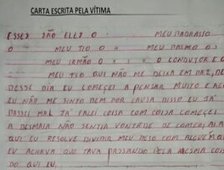 CARTA ESCRITA PELA VÍTIMA
ESSES SÃO ELES O MEU PADRASTO
O MEU TIO O MEU PALMO O
O MEU IRMÃO O O CONDUTOR E O
MEU TIO QUE NÃO ME DEIXA EM PAZ, DE
DESSE DIA EU COMEÇEI A PENSAR MUITO E
EU NÃO ME SINTO BEM POR CAUSA DISSO EU JÁ
PASSEI MAL JÁ FALEI COISA COM COISA COMEÇEI
A DESMAIA NÃO SENTIA VONTADE DE COMER
QUE EU RESOLVI DIVIDIR MEU PESO COM ALGUEM QUE
EU ACHAVA QUE TAVA PASSANDO PELA MESMA COISA
DO QUE EU